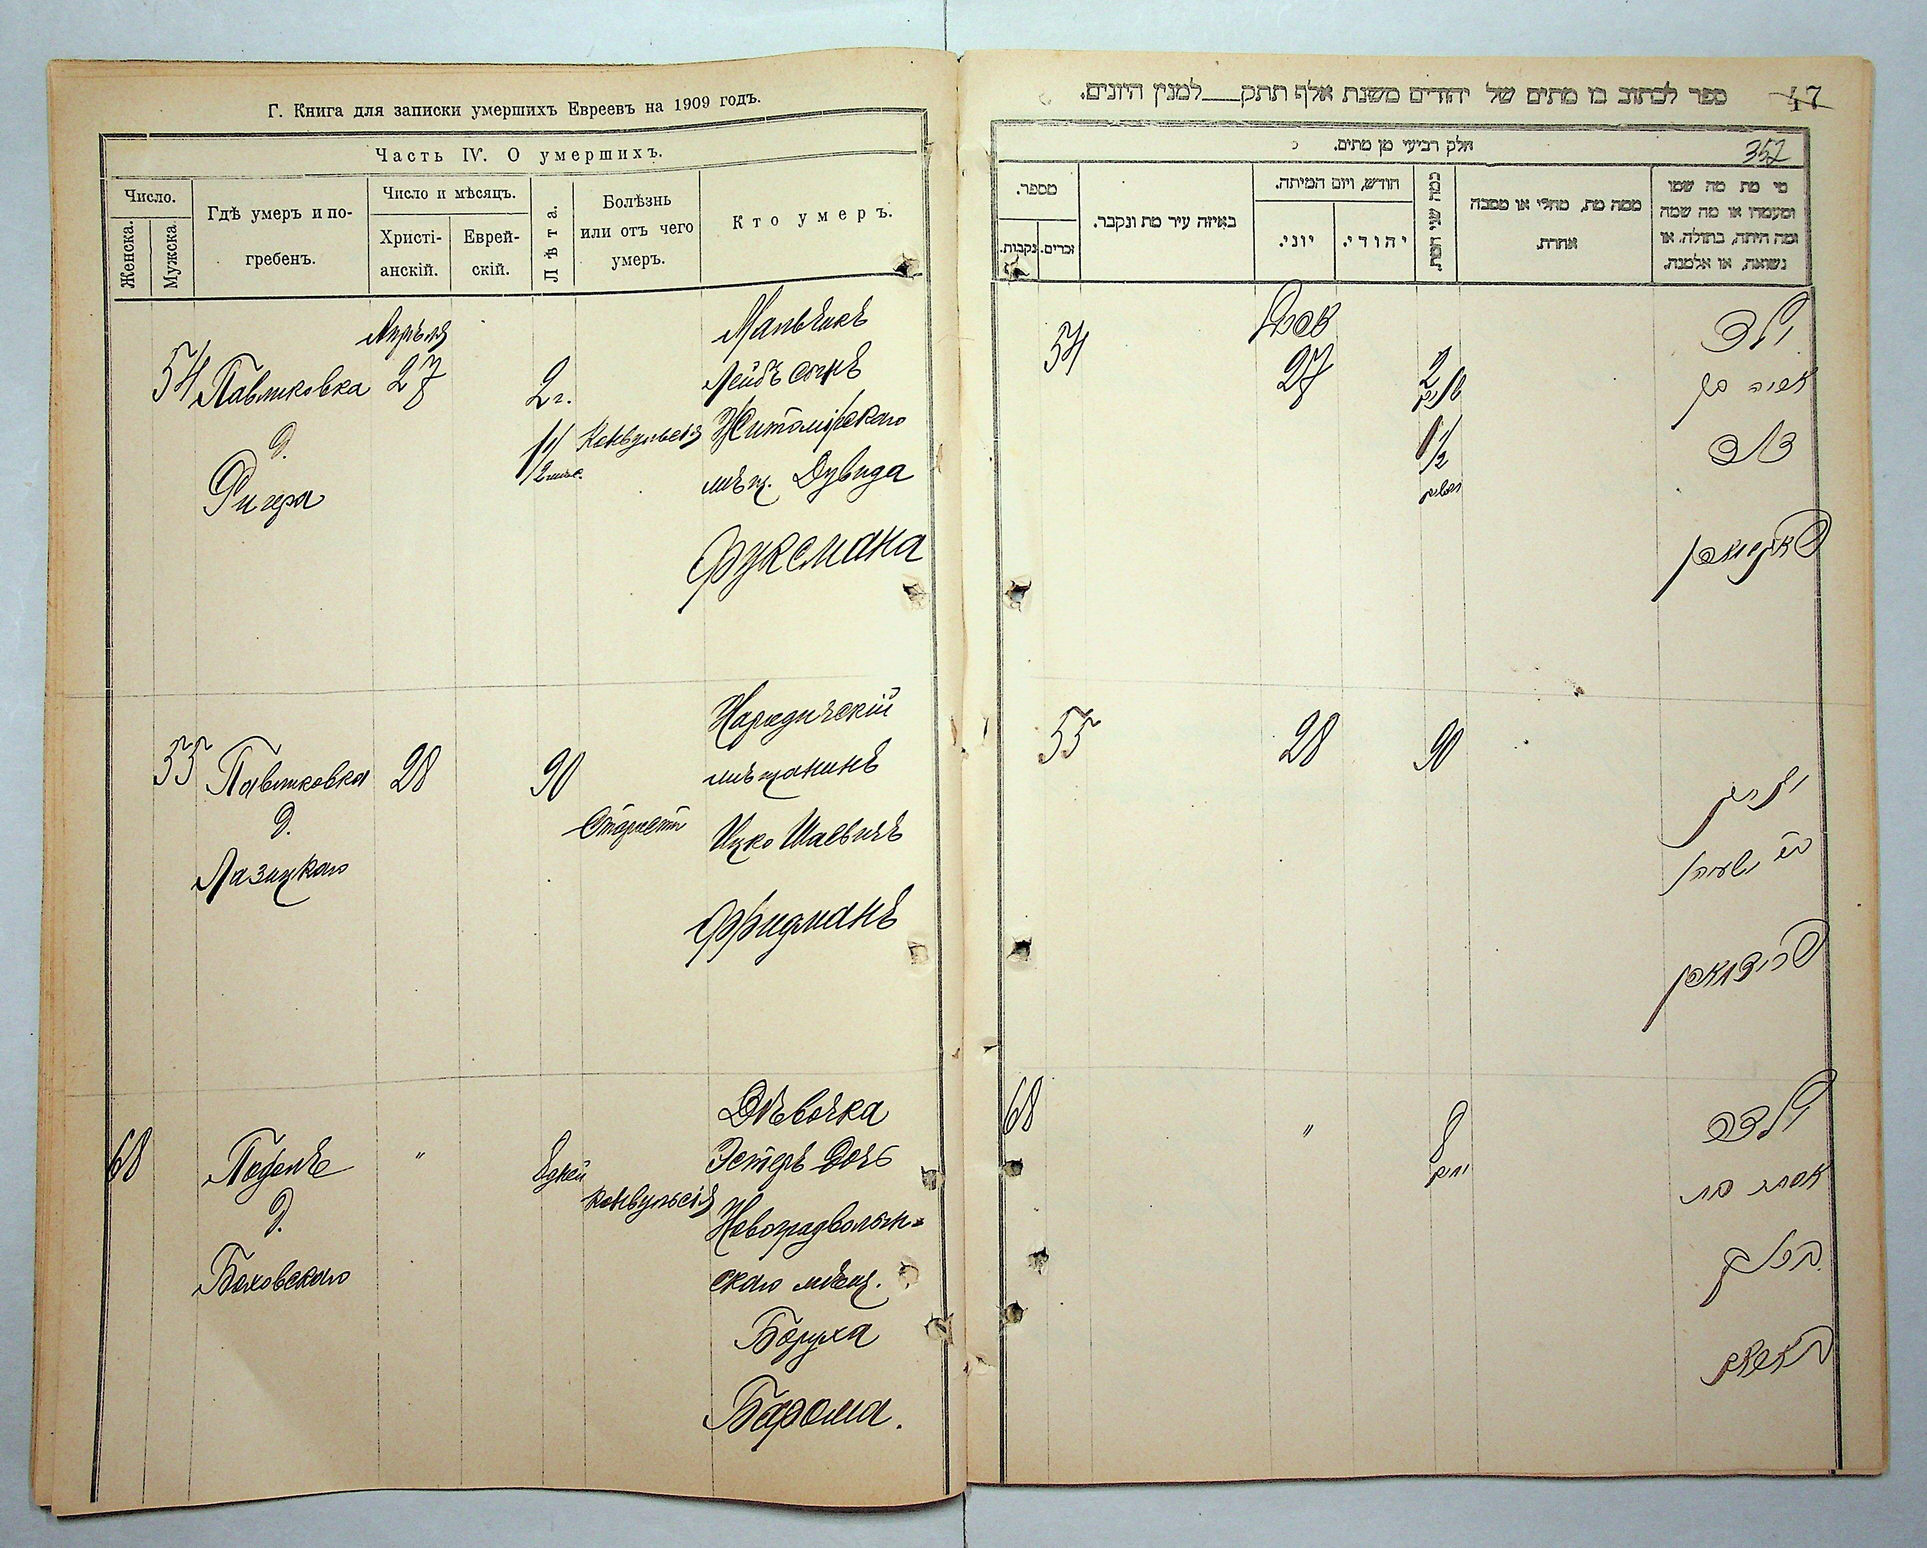 Г. Книга для записки умершихъ Евреевъ на 1909 годъ.
Часть IV. О умершихъ.
Число.
Женска.
Мужска
Гдѣ умеръ и по-
гребенъ.
Число и мѣсяцъ.
Христі-
анскій.
Еврей-
скій.
Лѣта.
Болѣзнь
или отъ чего
умеръ.
Кто умеръ.
54
Павликовка
д.
Ригера
Апрѣля
27
2 г.
1/2 мѣс.
Конвульсія
Мальчикъ
Лейбъ сынъ
Житомірскаго
мѣщ. Дувида
Фуксмана
55
Павликовка
д.
Лазицкаго
28
90
Старость
Народичскій
мѣщанинъ
Ицко Шаевичъ
Фридманъ
68
д.
Боховскаго
"
8 дней
Конвульсія
Дѣвочка
Эстеръ дочь
Новоградволын-
скаго мѣщ.
Боруха
Барома.
ספר לכתוב בו מתים של יהודים משנת אלף תתק למנין היונים.
47
חלק רביעי מן מתים.
352
מספר.
נקבות.
זכרים.
באיזה עיר מת ונקבר.
חודש, ויום המיתה.
יוני.
יהודי.
כמה שני המת.
ממה מת, מחלי או מסבה
אחרת.
מי מת מה שמו
ומעמדו או מה שמה
ומה היתה, בתולה, או
נשואה, או אלמנה.
54
27
2
1/2
ילד
55
28
90
זקן
ר' ישעיה
פרידמאן
68
"
8
ימים
ילדה
אסתר בת